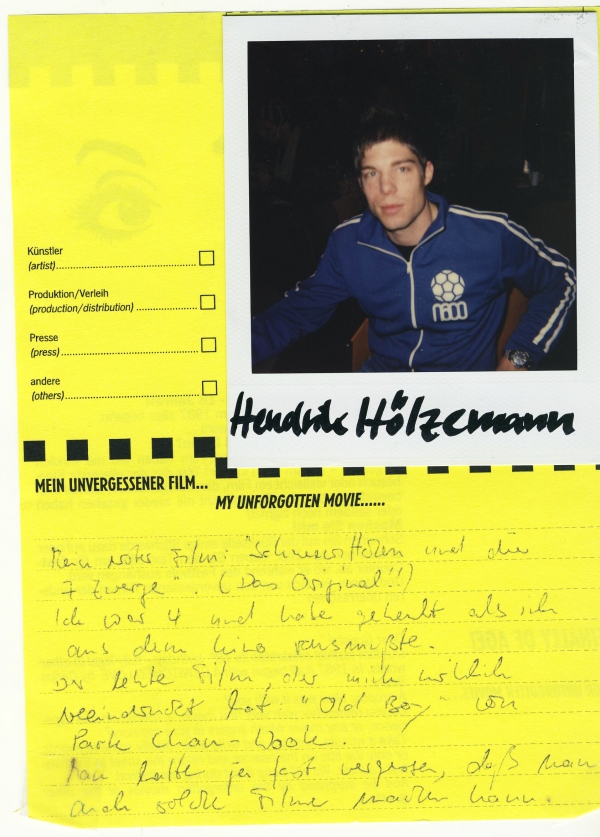 Künstler
(artist)
Produktion/Verleih
(production/distribution)
Presse
(press)
andere
(others)
naco
Hendrik Hölzemann
MEIN UNVERGESSENER FILM...
MY UNFORGOTTEN MOVIE......
Mein erster Film: "Schneewittchen und die
7 Zwerge". (Das Original!!)
Ich war 4 und habe geheult als ich
aus dem Kino rausmußte.
Der letzte Film, der mich wirklich
beeindruckt hat: "Old Boy" von
Park Chan-Wook.
Man hatte ja fast vergessen, daß man
auch solche Filme machen kann.